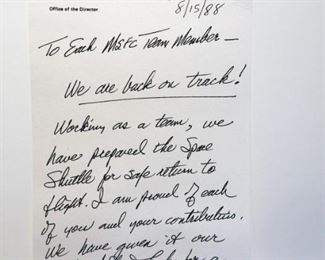 Office of the Director
8/15/88
To Each MSFC Team Member —
We are back on track!
Working as a team, we
have prepared the Space
Shuttle for safe return to
flight. I am proud of each
of you and your contributions.
We have given it our